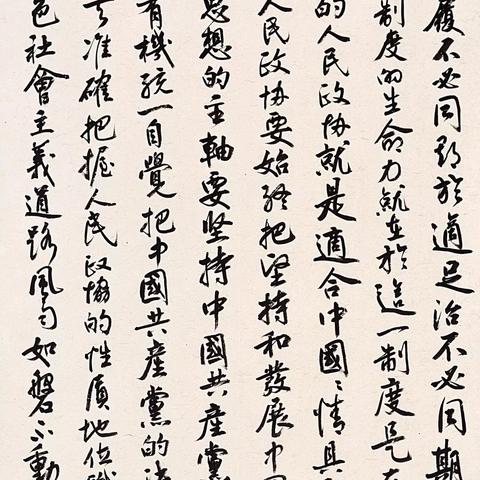 履不必同期於適足治不必同期
制度的生命力就在於這一制度是在
的人民政协就是適合中國〻情具
人民政协要始终把坚持和發展中国
思想的主軸要坚持中國共產黨
有機统一自覺把中國共產黨的
了准確把握人民政協的性質地位职
色社會主義道路風向如磐不動